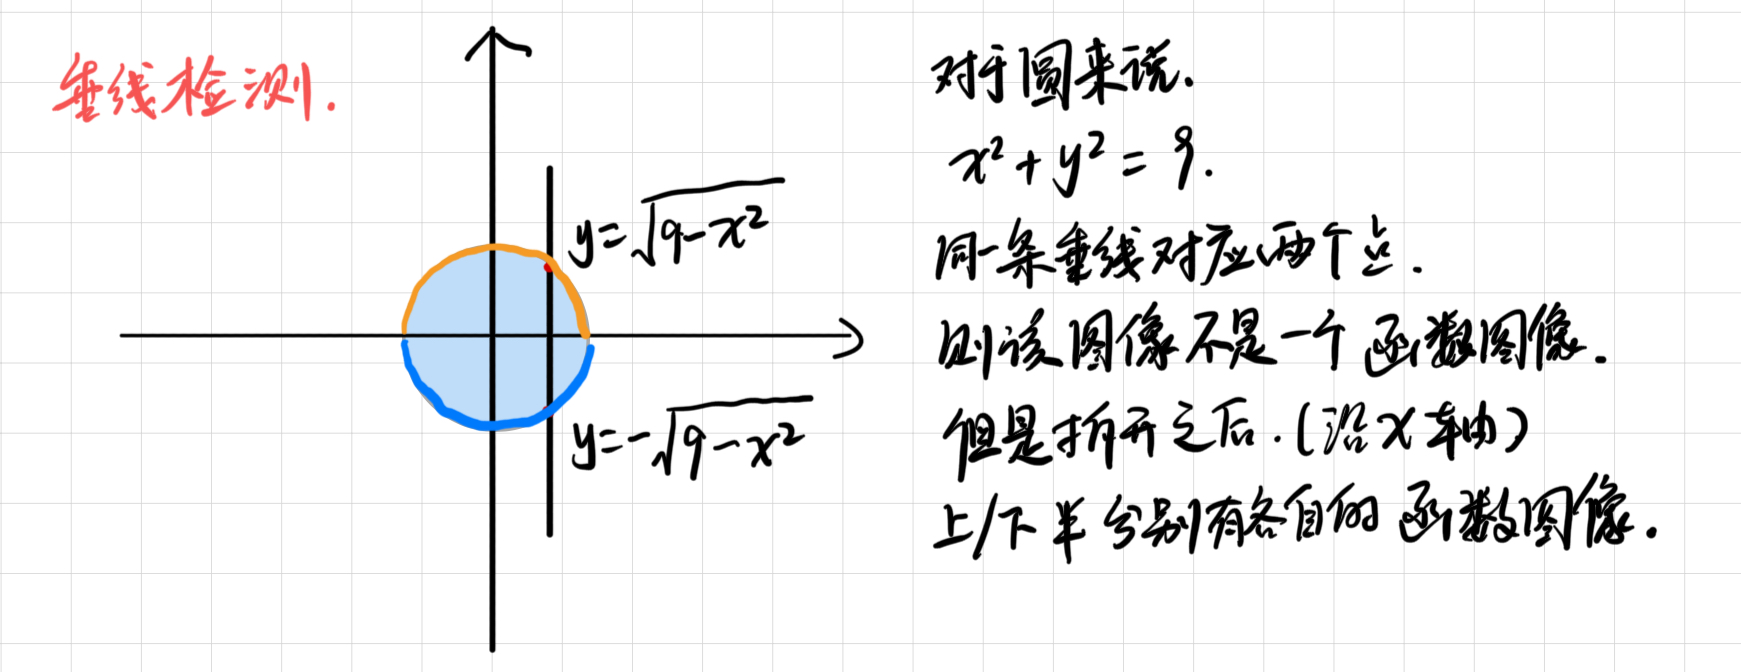 垂线检测.
y=√9-x²
y=-√9-x²
对于圆来说.
x²+y²=9.
同一条垂线对应两个点.
则该图像不是一个函数图像.
但是拆开之后.(沿x轴)
上/下半分别有各自的函数图像.